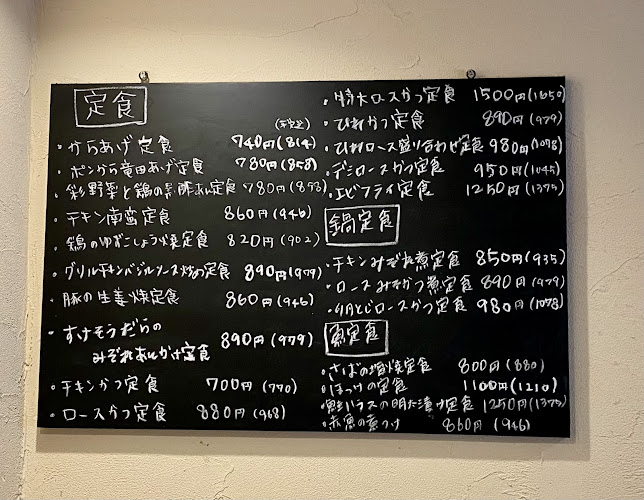 定食
(税込)
・からあげ定食 740円(814)
・ポンから竜田あげ定食 780円(858)
・彩野菜と鶏の黒酢あん定食 780円(858)
・チキン南蛮定食 860円(946)
・鶏のゆずこしょう焼定食 820円(902)
・グリルチキンバジルソース炒め定食 890円(979)
・豚の生姜焼定食 860円(946)
・すけそうだらの
みぞれあんかけ定食 890円(979)
・チキンかつ定食 700円(770)
・ロースかつ定食 880円(968)
・特大ロースかつ定食 1500円(1650)
・ひれかつ定食 890円(979)
・ひれロース盛り合わせ定食 980円(1078)
・デミロースかつ定食 950円(1045)
・エビフライ定食 1250円(1375)
鍋定食
・チキンみぞれ煮定食 850円(935)
・ロースみそかつ煮定食 890円(979)
・卵とじロースかつ定食 980円(1078)
魚定食
・さばの塩焼定食 800円(880)
・ほっけの定食 1100円(1210)
・鮭ハラスの明太漬け定食 1250円(1375)
・赤魚の煮つけ 860円(946)